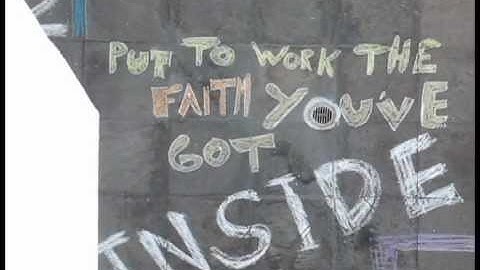 PUT TO WORK THE
FAITH YOU'VE
GOT
INSIDE